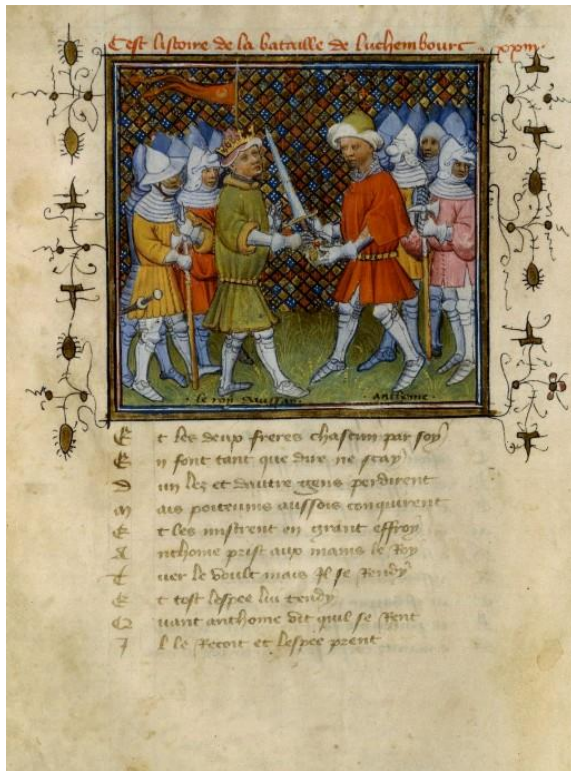 C'est listoire de la bataille de luchembourc . xxiii.
le roy d'aussay . anthoine .
E t les deux freres chascun par soy
E n font tant que dire ne scay
D un lez et dautre gens perdirent
M ais poiteuins aussois conquirent
E t les mistrent en grant effroy
A nthoine prist aux mains le Roy
T uer le voult mais Il se Rendy
E t tost lespee luy tendy
Q uant anthoine vit quil se Rent
I l le Recoit et lespee prent